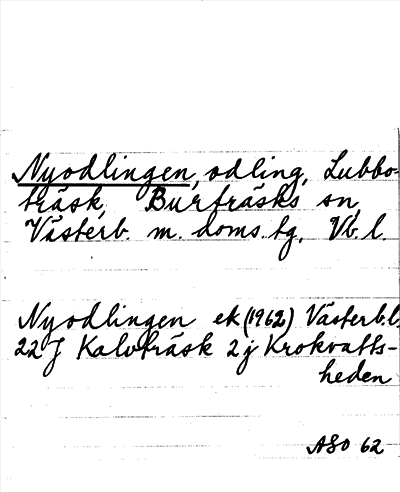 Nyodlingen, odling, Lubbo-
träsk, Burträsks sn,
Västerb. m. doms.tg, Vb.l.
Nyodlingen ek (1962) Västerb.l.
22 J Kalvträsk 2j Krokvatts-
heden
ASO 62